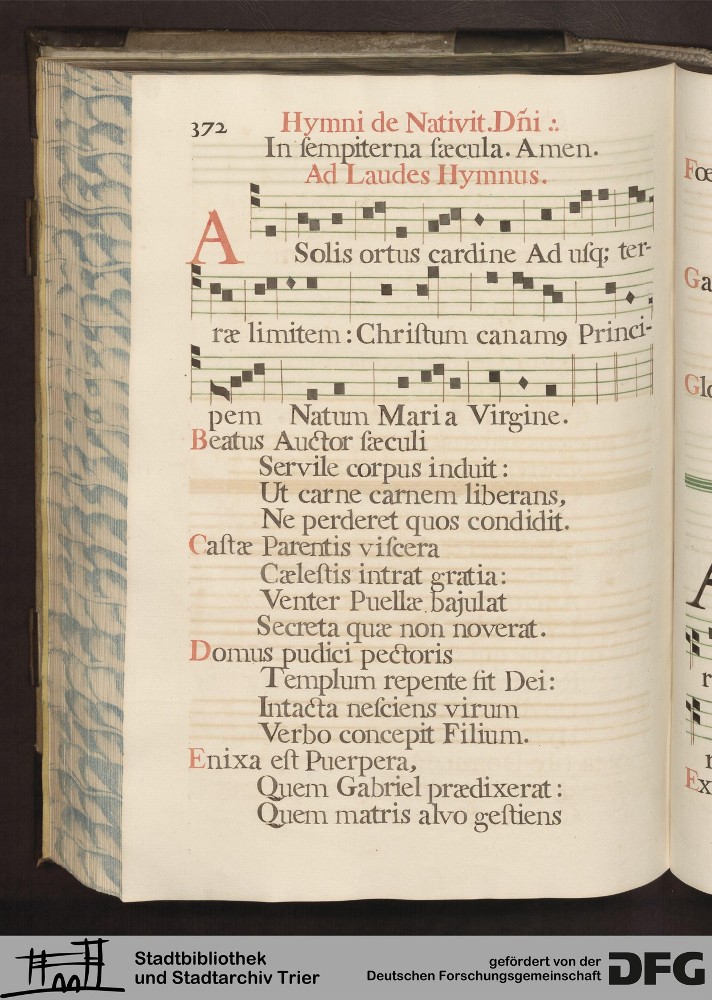 372 Hymni de Nativit. Dñi :.
In ſempiterna ſæcula. Amen.
Ad Laudes Hymnus.
A Solis ortus cardine Ad uſq; ter-
ræ limitem : Chriſtum canamꝰ Princi-
pem Natum Maria Virgine.
Beatus Auctor ſæculi
Servile corpus induit :
Ut carne carnem liberans,
Ne perderet quos condidit.
Caſtæ Parentis viſcera
Cæleſtis intrat gratia :
Venter Puellæ bajulat
Secreta quæ non noverat.
Domus pudici pectoris
Templum repente fit Dei :
Intacta neſciens virum
Verbo concepit Filium.
Enixa eſt Puerpera,
Quem Gabriel prædixerat :
Quem matris alvo geſtiens
Fœ
Ga
Glo
A
r
r
Ex
Stadtbibliothek
und Stadtarchiv Trier
gefördert von der
Deutschen Forschungsgemeinschaft
DFG